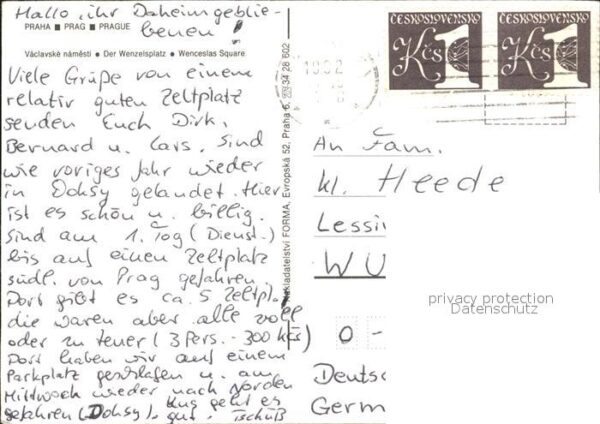 Hallo, ihr Daheimgeblie-
benen!
PRAHA ■ PRAG ■ PRAGUE
Václavské náměstí ● Der Wenzelsplatz ● Wenceslas Square
Viele Grüße von einem
relativ guten Zeltplatz
senden Euch Dirk,
Bernard u. Lars. Sind
wie voriges Jahr wieder
in Doksy gelandet. Hier
ist es schön u. billig.
Sind am 1. Tag (Dienst.)
bis auf einen Zeltplatz
südl. von Prag gefahren.
Dort gibt es ca. 5 Zeltpl.,
die waren aber alle voll
oder zu teuer (3 Pers. - 300 kčs)
Dort haben wir auf einem
Parkplatz geschlafen u. am
Mittwoch wieder nach Norden
gefahren (Doksy). Uns geht es
gut. Tschüß
Nakladatelství FORMA, Evropská 52, Praha 6,
34 28 602
ČESKOSLOVENSKO
Kčs 1
ČESKOSLOVENSKO
Kčs 1
1992
An Fam.
Kl. Heede
Lessi
WU
O -
Deutsc
Germ
privacy protection
Datenschutz